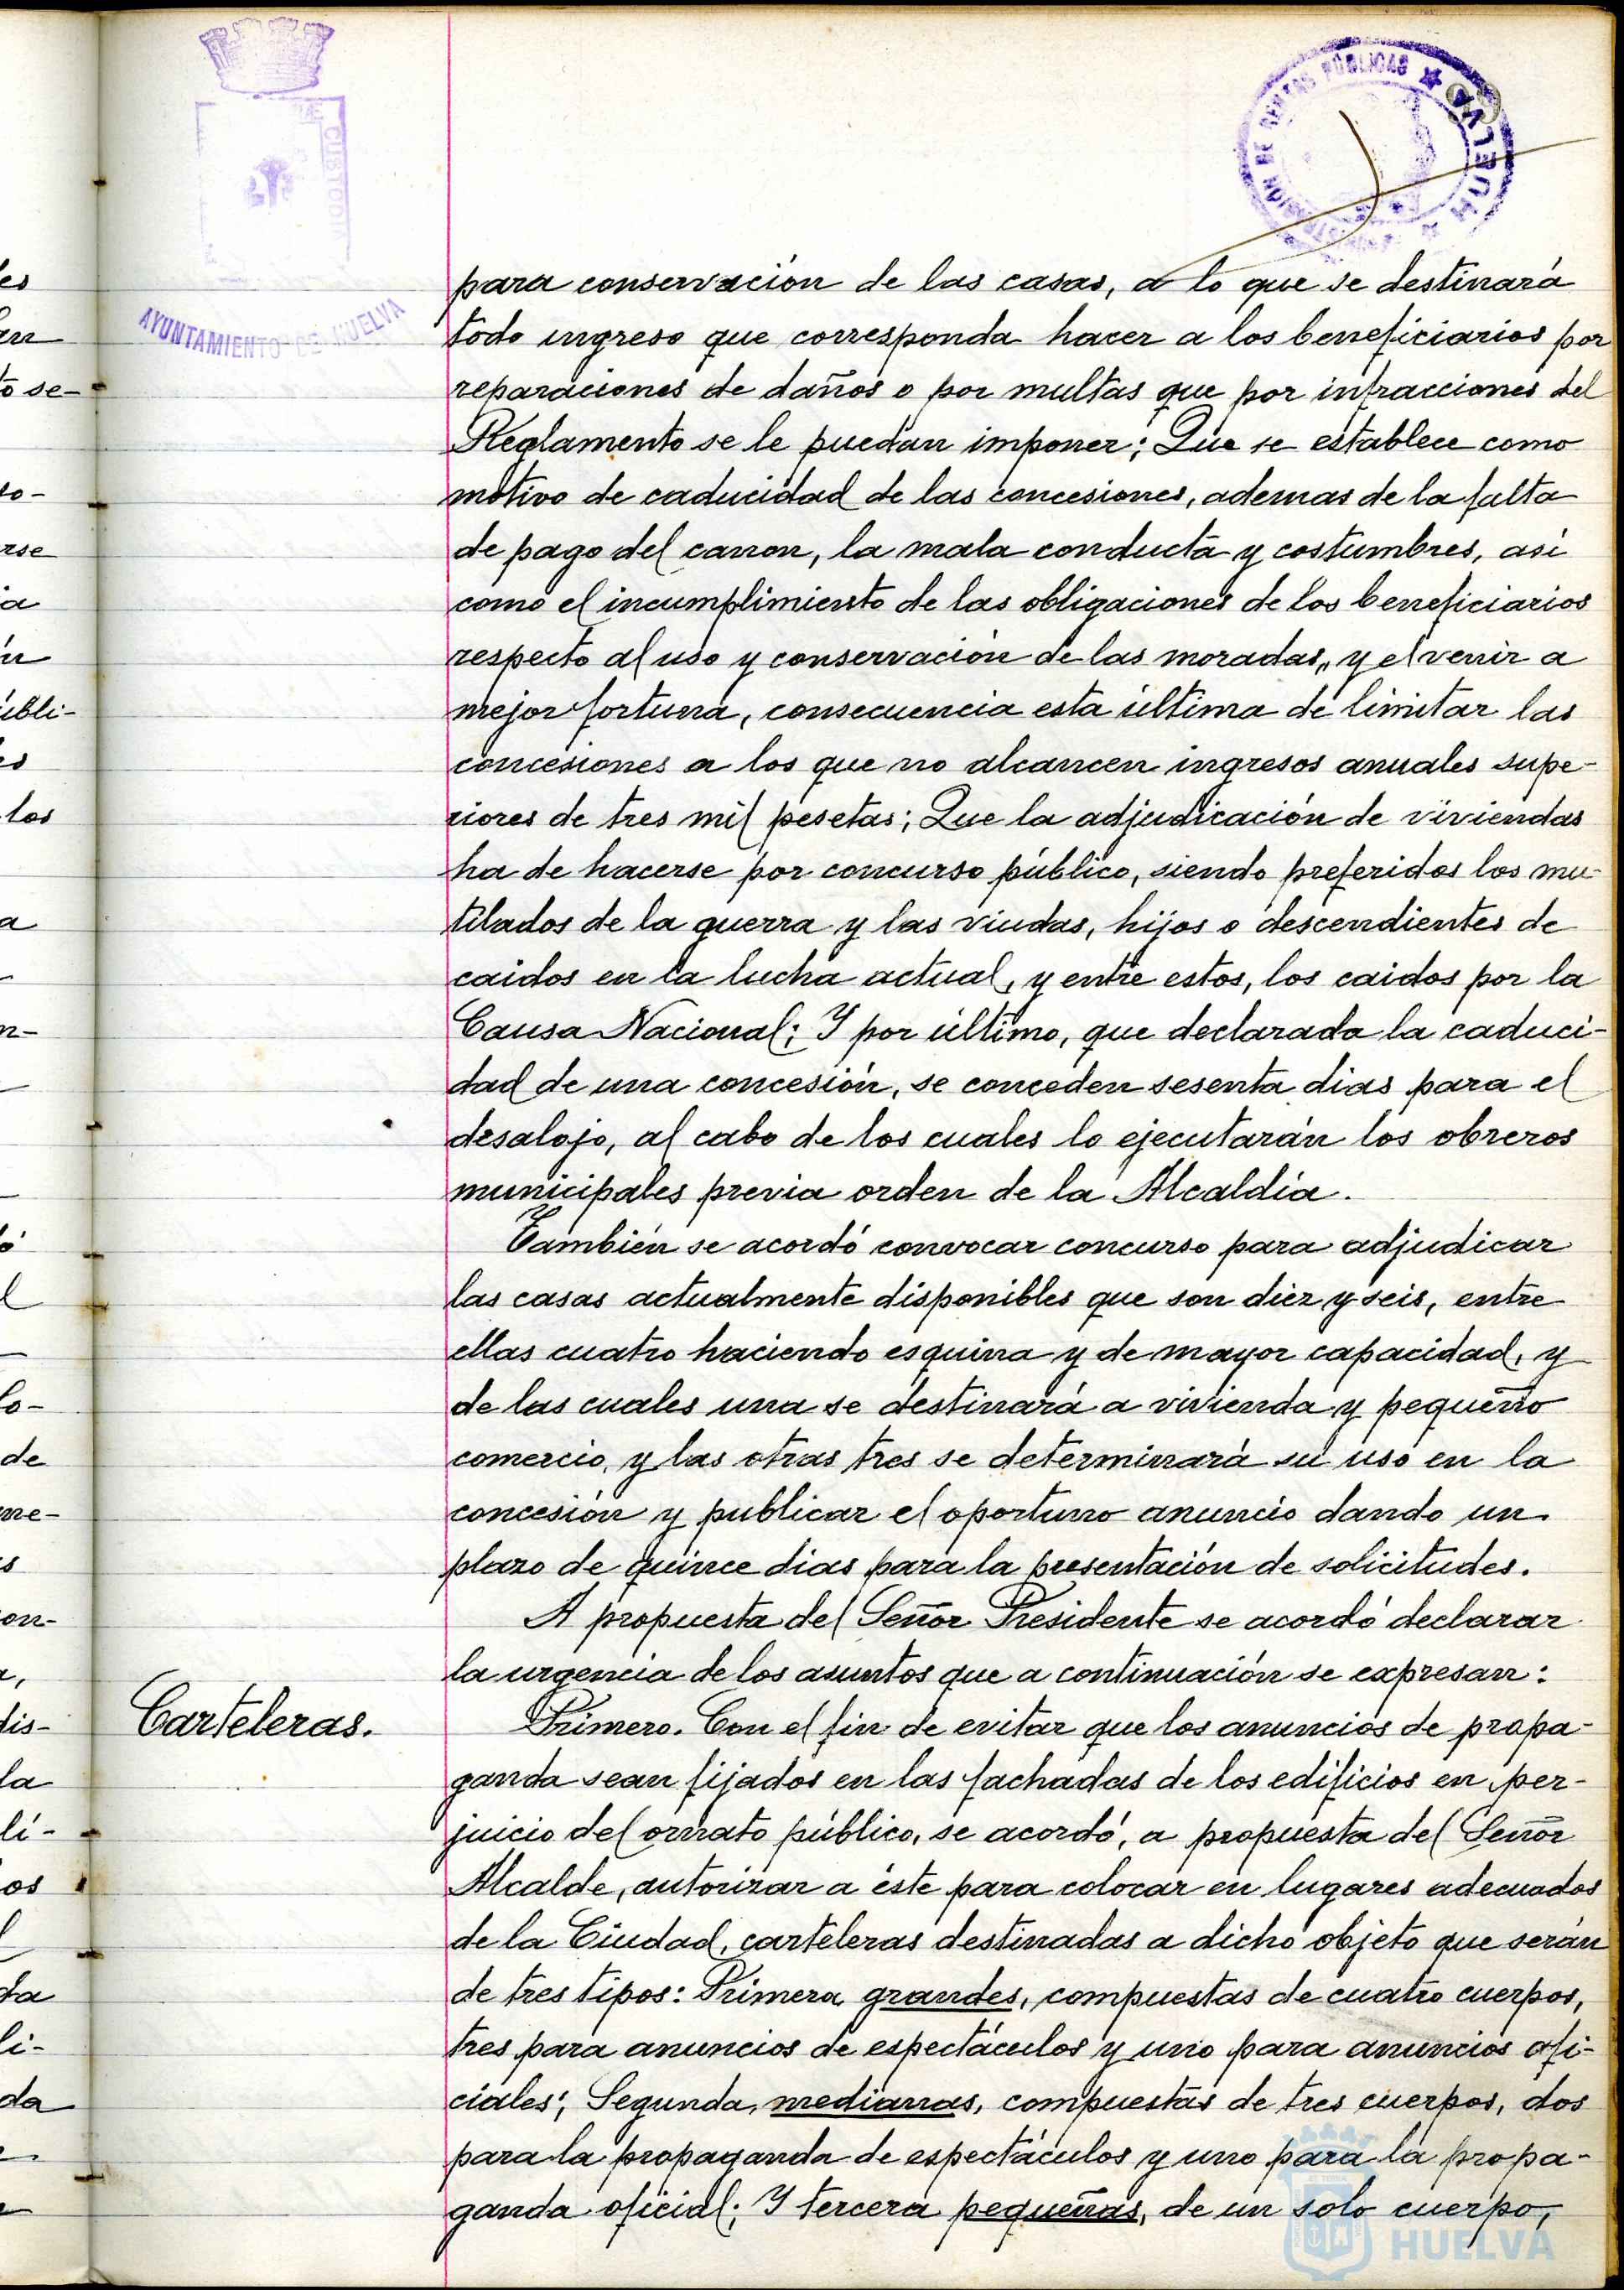 AYUNTAMIENTO DE HUELVA
PÚBLICAS ★ HUELVA
para conservación de las casas, a lo que se destinará
todo ingreso que corresponda hacer a los beneficiarios por
reparaciones de daños o por multas que por infracciones del
Reglamento se le puedan imponer; Que se establece como
motivo de caducidad de las concesiones, ademas de la falta
de pago del canon, la mala conducta y costumbres, asi
como el incumplimiento de las obligaciones de los beneficiarios
respecto al uso y conservación de las moradas, y el venir a
mejor fortuna, consecuencia esta última de limitar las
concesiones a los que no alcancen ingresos anuales supe-
riores de tres mil pesetas; Que la adjudicación de viviendas
ha de hacerse por concurso público, siendo preferidos los mu-
tilados de la guerra y las viudas, hijos o descendientes de
caidos en la lucha actual, y entre estos, los caidos por la
Causa Nacional; Y por último, que declarada la caduci-
dad de una concesión, se conceden sesenta dias para el
desalojo, al cabo de los cuales lo ejecutarán los obreros
municipales previa orden de la Alcaldía.
También se acordó convocar concurso para adjudicar
las casas actualmente disponibles que son diez y seis, entre
ellas cuatro haciendo esquina y de mayor capacidad, y
de las cuales una se destinará a vivienda y pequeño
comercio, y las otras tres se determinará su uso en la
concesión y publicar el oportuno anuncio dando un
plazo de quince dias para la presentación de solicitudes.
A propuesta del Señor Presidente se acordó declarar
la urgencia de los asuntos que a continuación se expresan:
Carteleras.
Primero. Con el fin de evitar que los anuncios de propa-
ganda sean fijados en las fachadas de los edificios en per-
juicio del ornato público, se acordó, a propuesta del Señor
Alcalde, autorizar a éste para colocar en lugares adecuados
de la Ciudad, carteleras destinadas a dicho objeto que serán
de tres tipos: Primera grandes, compuestas de cuatro cuerpos,
tres para anuncios de espectáculos y uno para anuncios ofi-
ciales; Segunda, medianas, compuestas de tres cuerpos, dos
para la propaganda de espectáculos y uno para la propa-
ganda oficial; Y tercera pequeñas, de un solo cuerpo,
HUELVA